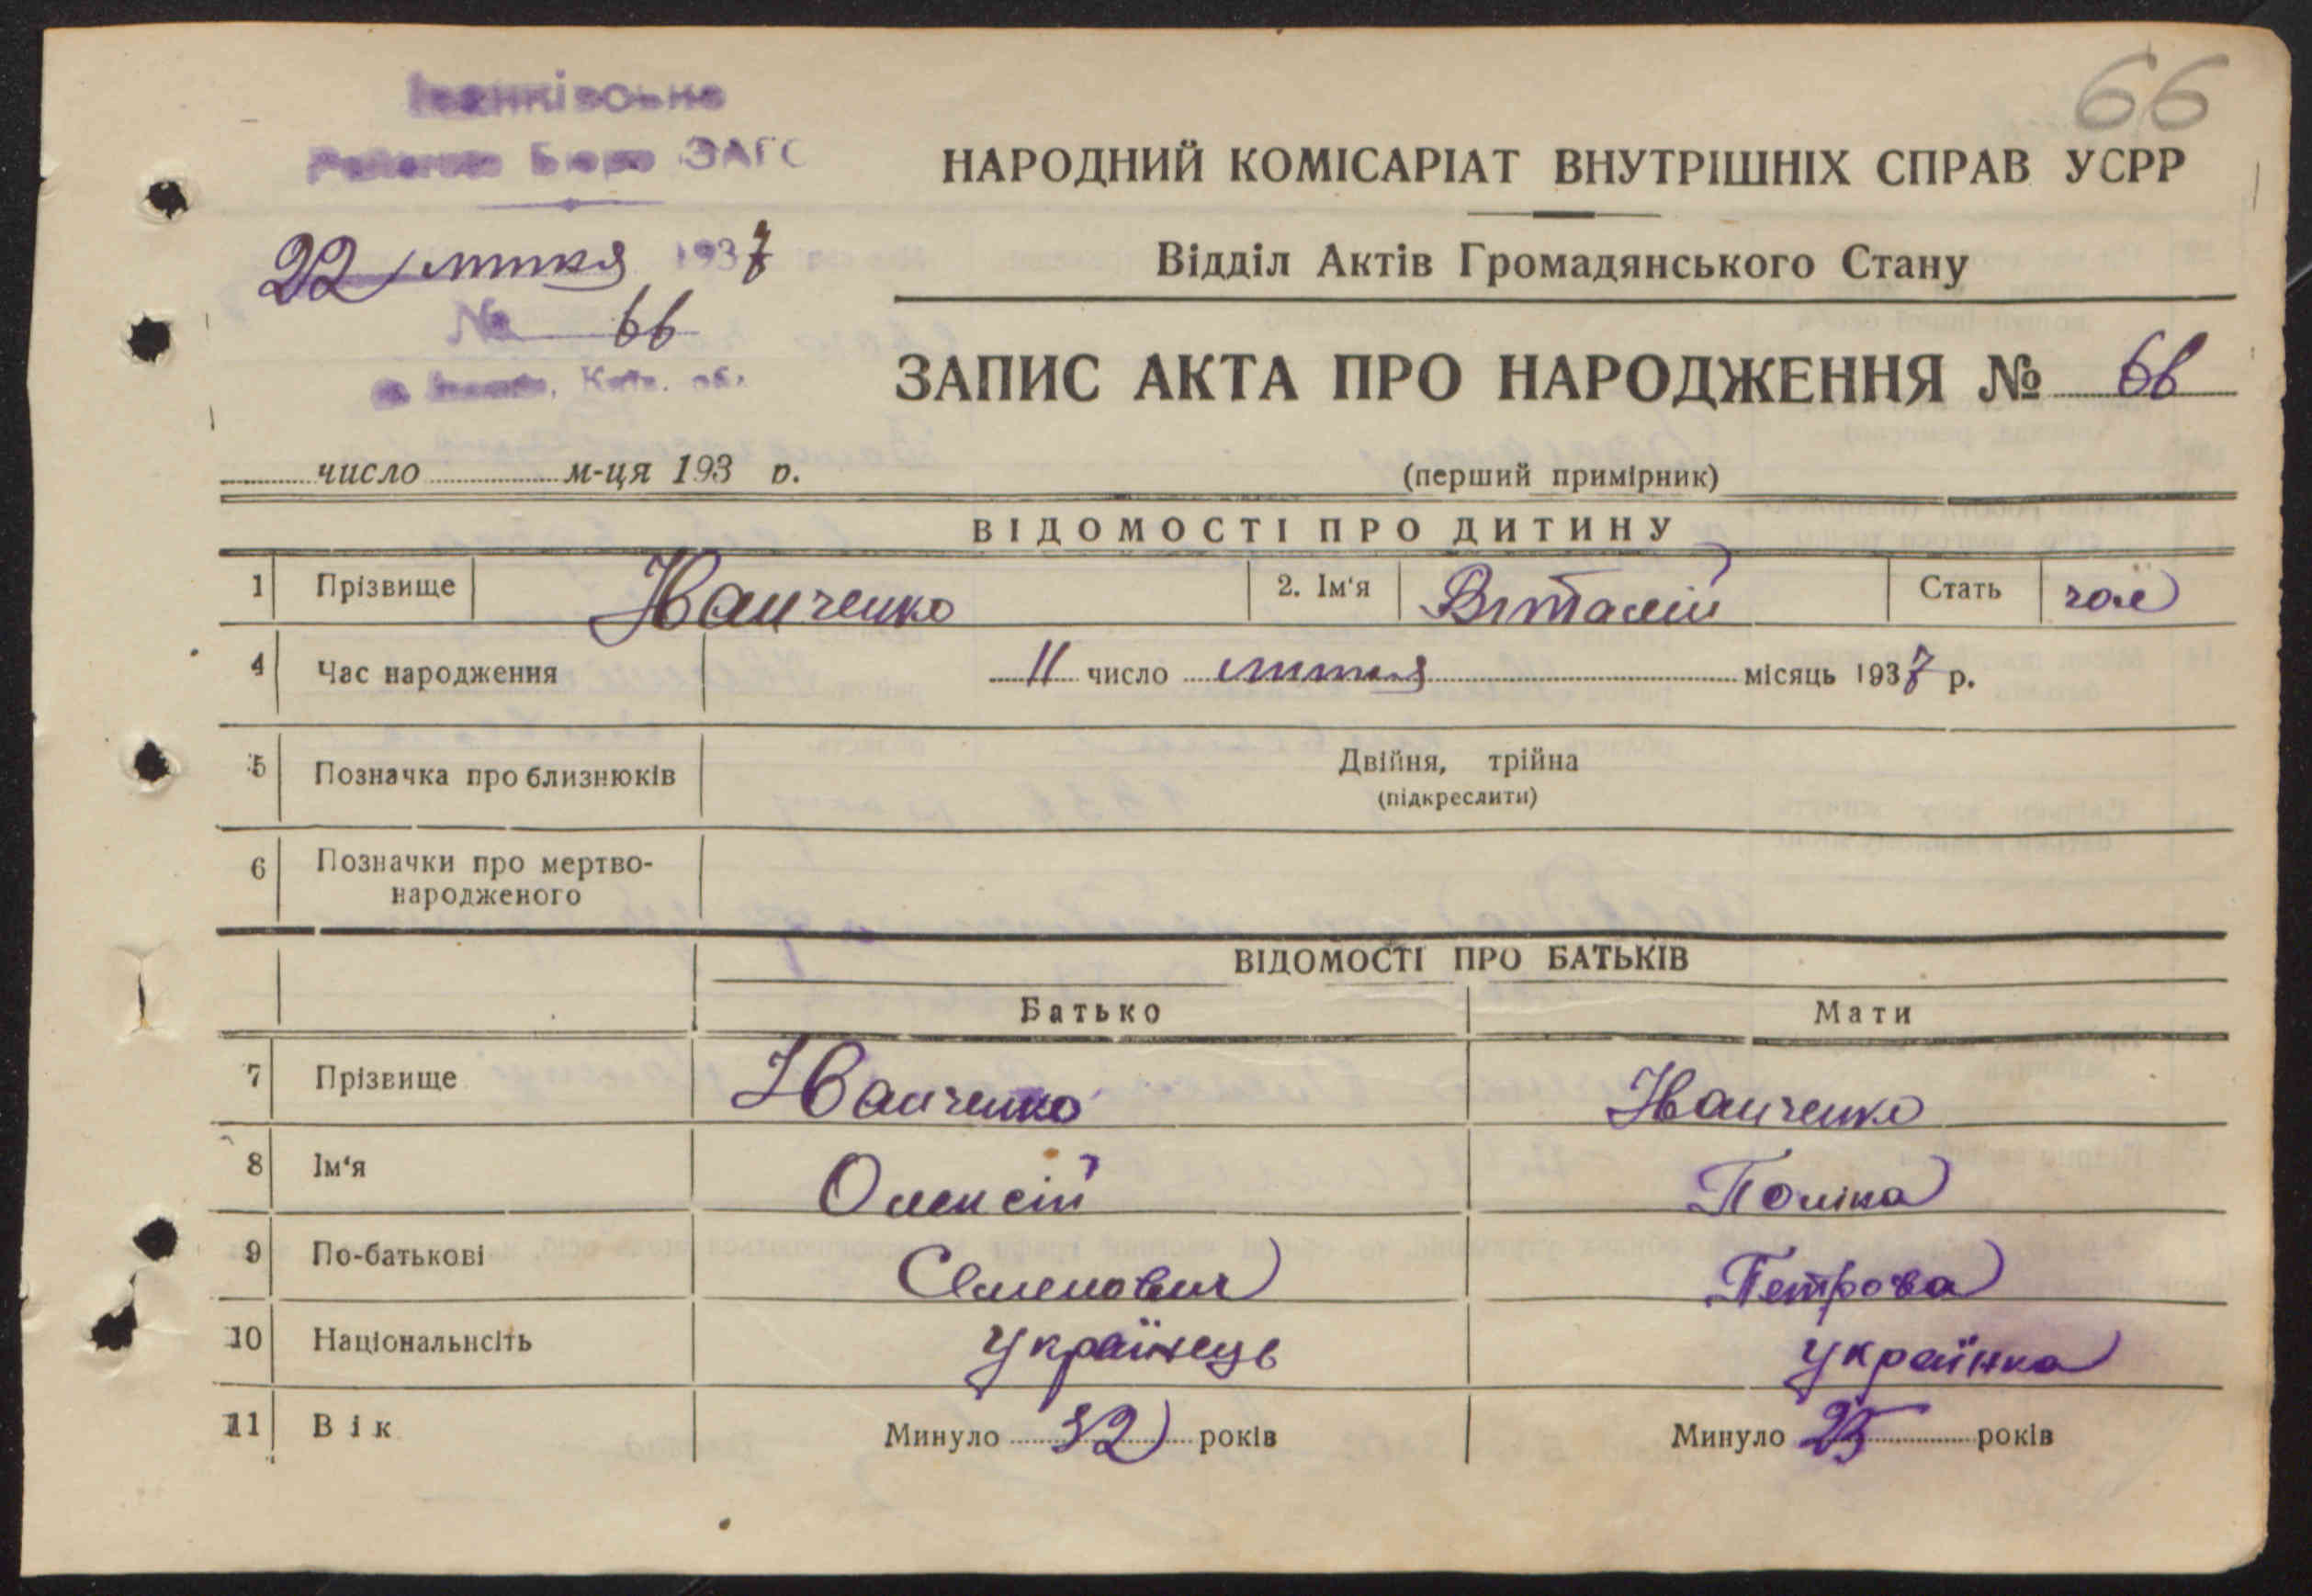 66
Іванківське
Районове Бюро ЗАГС
НАРОДНИЙ КОМІСАРІАТ ВНУТРІШНІХ СПРАВ УСРР
22 лютня 1937
Відділ Актів Громадянського Стану
№ 66
Київ. обл.
ЗАПИС АКТА ПРО НАРОДЖЕННЯ № 66
число м-ця 193 р.
(перший примірник)
ВІДОМОСТІ ПРО ДИТИНУ
1 Прізвище Іванченко 2. Ім'я Віталій Стать чол
4 Час народження 11 число лютня місяць 1937 р.
5 Позначка про близнюків Двійня, трійна
(підкреслити)
6 Позначки про мертво-
народженого
ВІДОМОСТІ ПРО БАТЬКІВ
Батько Мати
7 Прізвище Іванченко Іванченко
8 Ім'я Олексій Поліна
9 По-батькові Семенович Петрова
10 Національнсіть Українець Українка
11 Вік Минуло 32 років Минуло 25 років